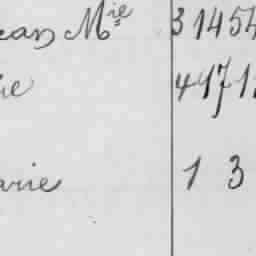 ean Mie 31454
ie 4471
arie 1 3